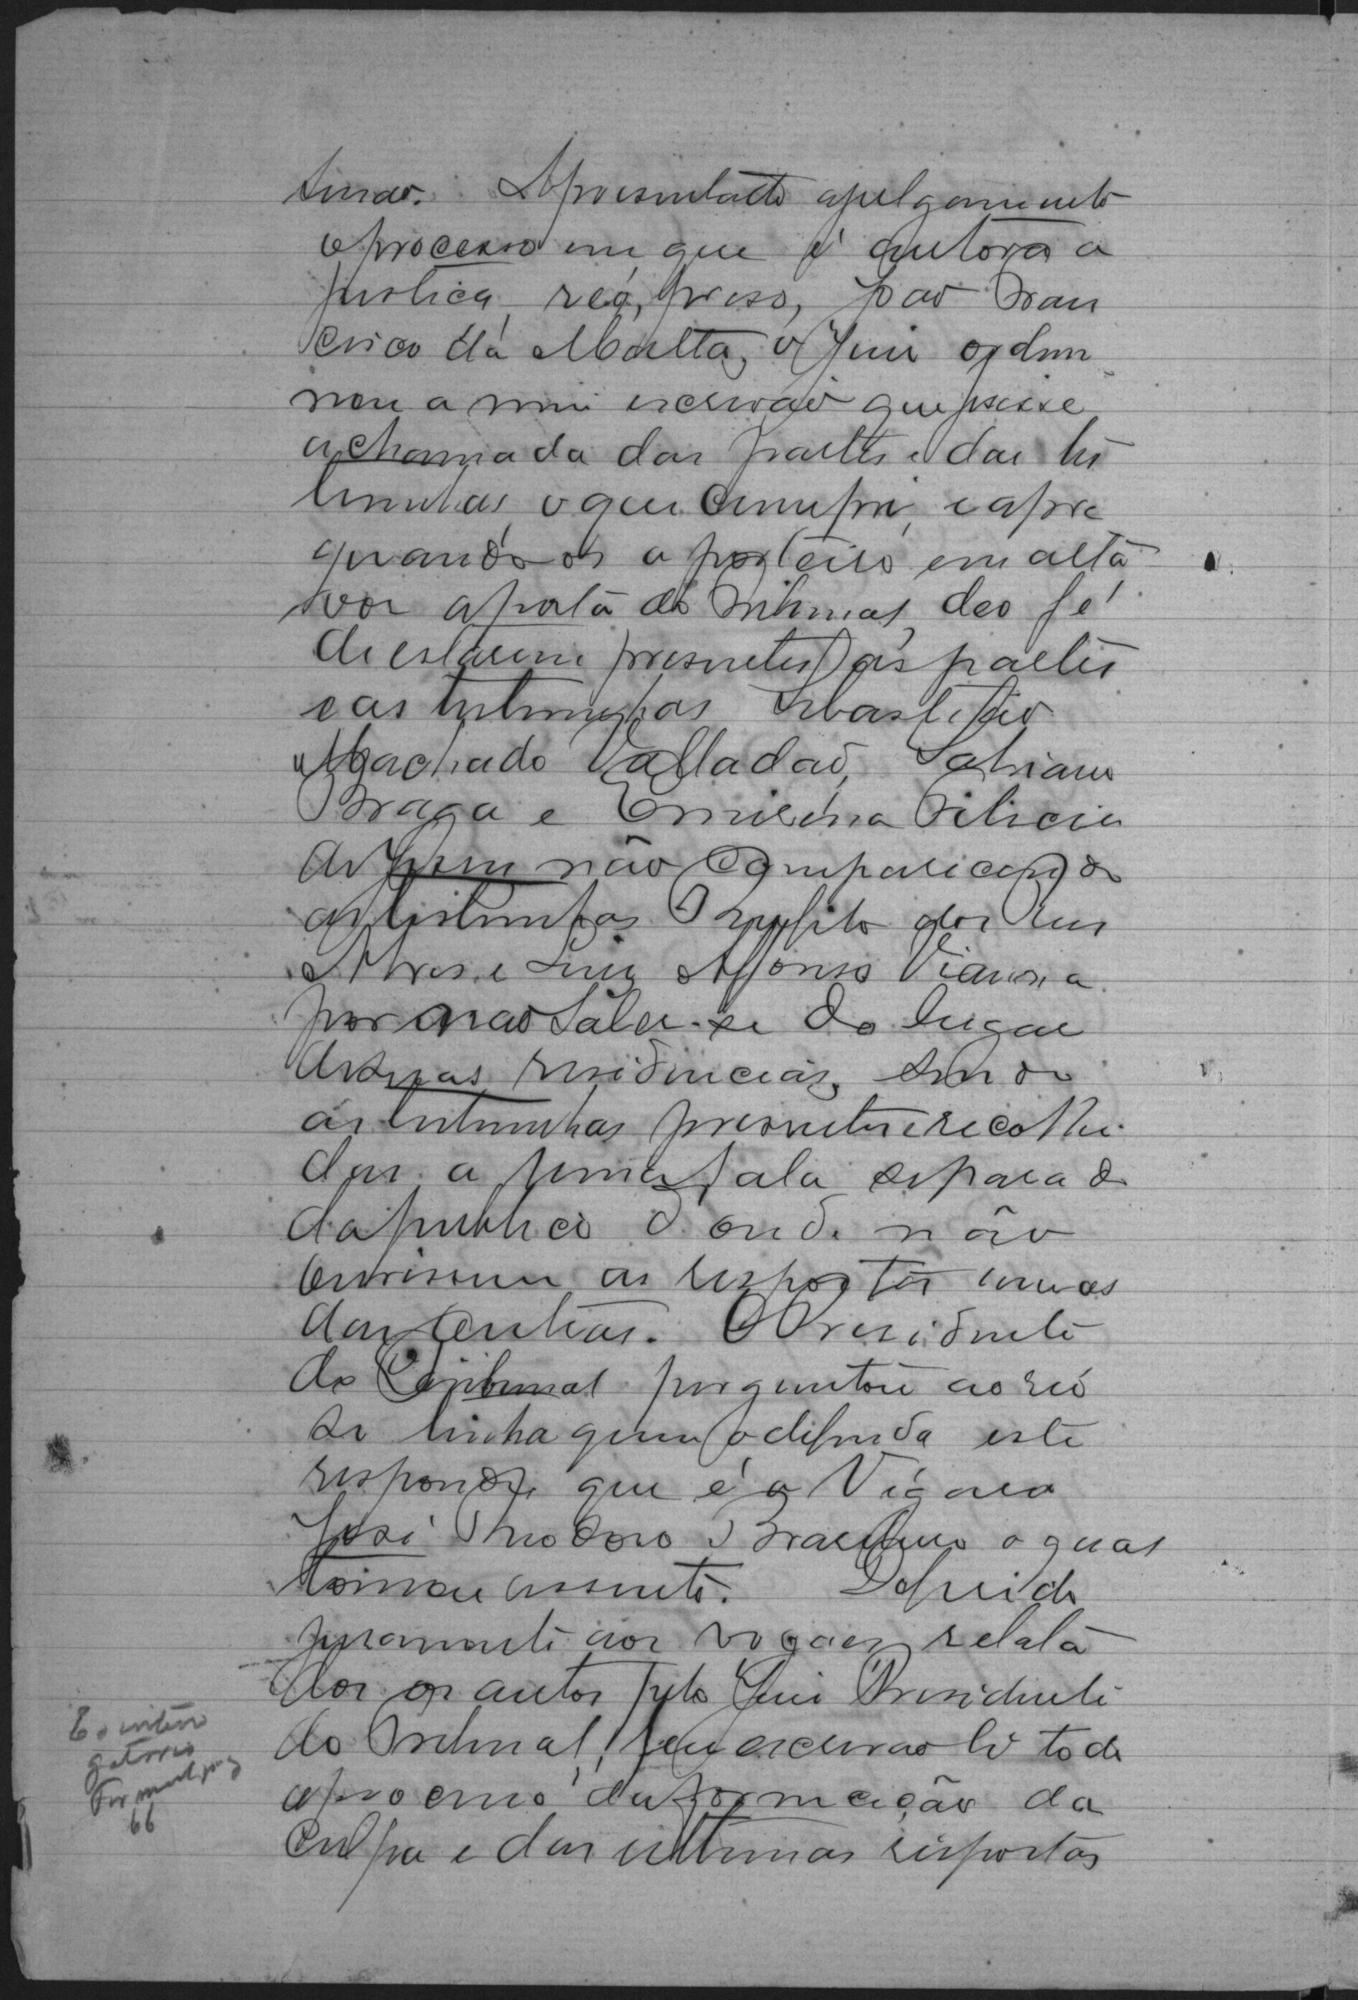 Apresentado a julgamento
o processo em que é autora a
justiça, réo, preso, João Fran
cisco da Motta, o Juiz orden
nou a mim escrivão que fizesse
a chamada das partes e das tes
temunhas, o que cumpri, e apre
guando-os o porteiro em alta
voz a porta do Tribunal, deo fé
de estarem presentes as partes
e as testemunhas Sebastião
Machado Valladão, Sabiano
Braga e Emirena Felicia
de Jesus não comparecendo
as testemunhas Hypolito dos Reis
Alves e Luiz Affonso Vianna
por não saber-se do lugar
de suas residencias, sendo
as testemunhas presentes recolhi
das a uma sala separada
do publico d'onde não
ouvissem as respostas umas
das outras. O Presidente
do Tribunal perguntou ao reó
se tinha quem o defenda este
responde que é o Vigario
José Theodoro Brasileiro o qual
tomou assento. Deferido
juramento aos vogaes, relata
dos os autos pelo Juiz Presidente
do Tribunal, eu escrivão li todo
o processo da formação da
culpa e das ultimas respostas
E o interro
gatorio
66